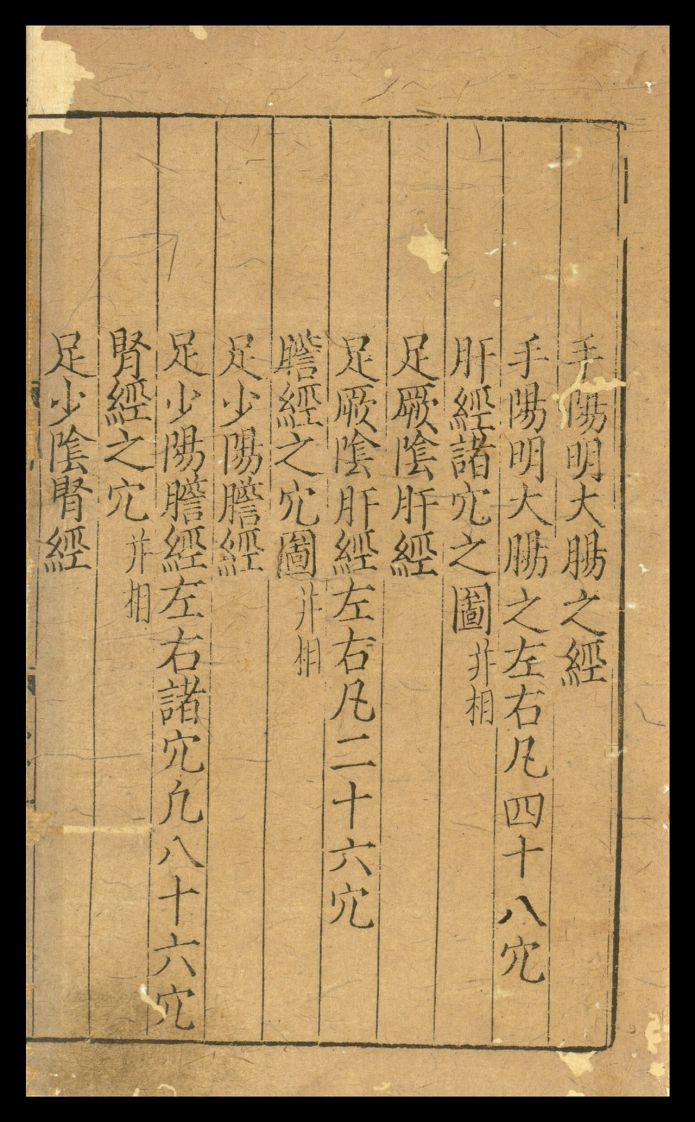 手陽明大腸之經
手陽明大腸之左右凡四十八穴
肝經諸穴之圖并相
足厥陰肝經
足厥陰肝經左右凡二十六穴
膽經之穴圖并相
足少陽膽經
足少陽膽經左右諸穴凢八十六穴
腎經之穴并相
足少陰腎經